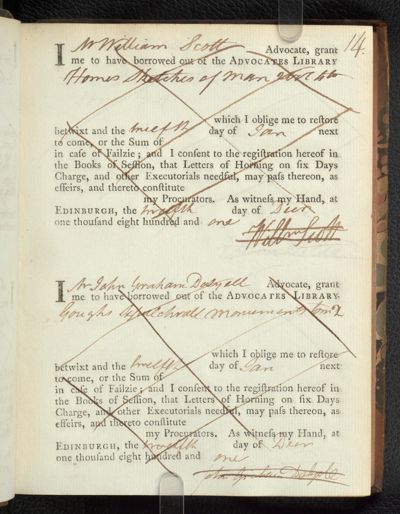 14.
I Mr William Scott Advocate, grant
me to have borrowed out of the ADVOCATES LIBRARY
Homes Sketches of Man 2 vol 4to
which I oblige me to reſtore
betwixt and the twelfth day of Jan next
to come, or the Sum of
in caſe of Failzie; and I conſent to the regiſtration hereof in
the Books of Seſſion, that Letters of Horning on ſix Days
Charge, and other Executorials needful, may paſs thereon, as
effeirs, and thereto conſtitute
my Procurators. As witneſs my Hand, at
EDINBURGH, the twelfth day of Decr
one thouſand eight hundred and one
Willm Scott
I Mr John Graham Dalyell Advocate, grant
me to have borrowed out of the ADVOCATES LIBRARY.
Goughs Sepulchrall Monuments
which I oblige me to reſtore
betwixt and the twelfth day of Jan next
to come, or the Sum of
in caſe of Failzie; and I conſent to the regiſtration hereof in
the Books of Seſſion, that Letters of Horning on ſix Days
Charge, and other Executorials needful, may paſs thereon, as
effeirs, and thereto conſtitute
my Procurators. As witneſs my Hand, at
EDINBURGH, the twelfth day of Decr
one thouſand eight hundred and one
John Graham Dalyell